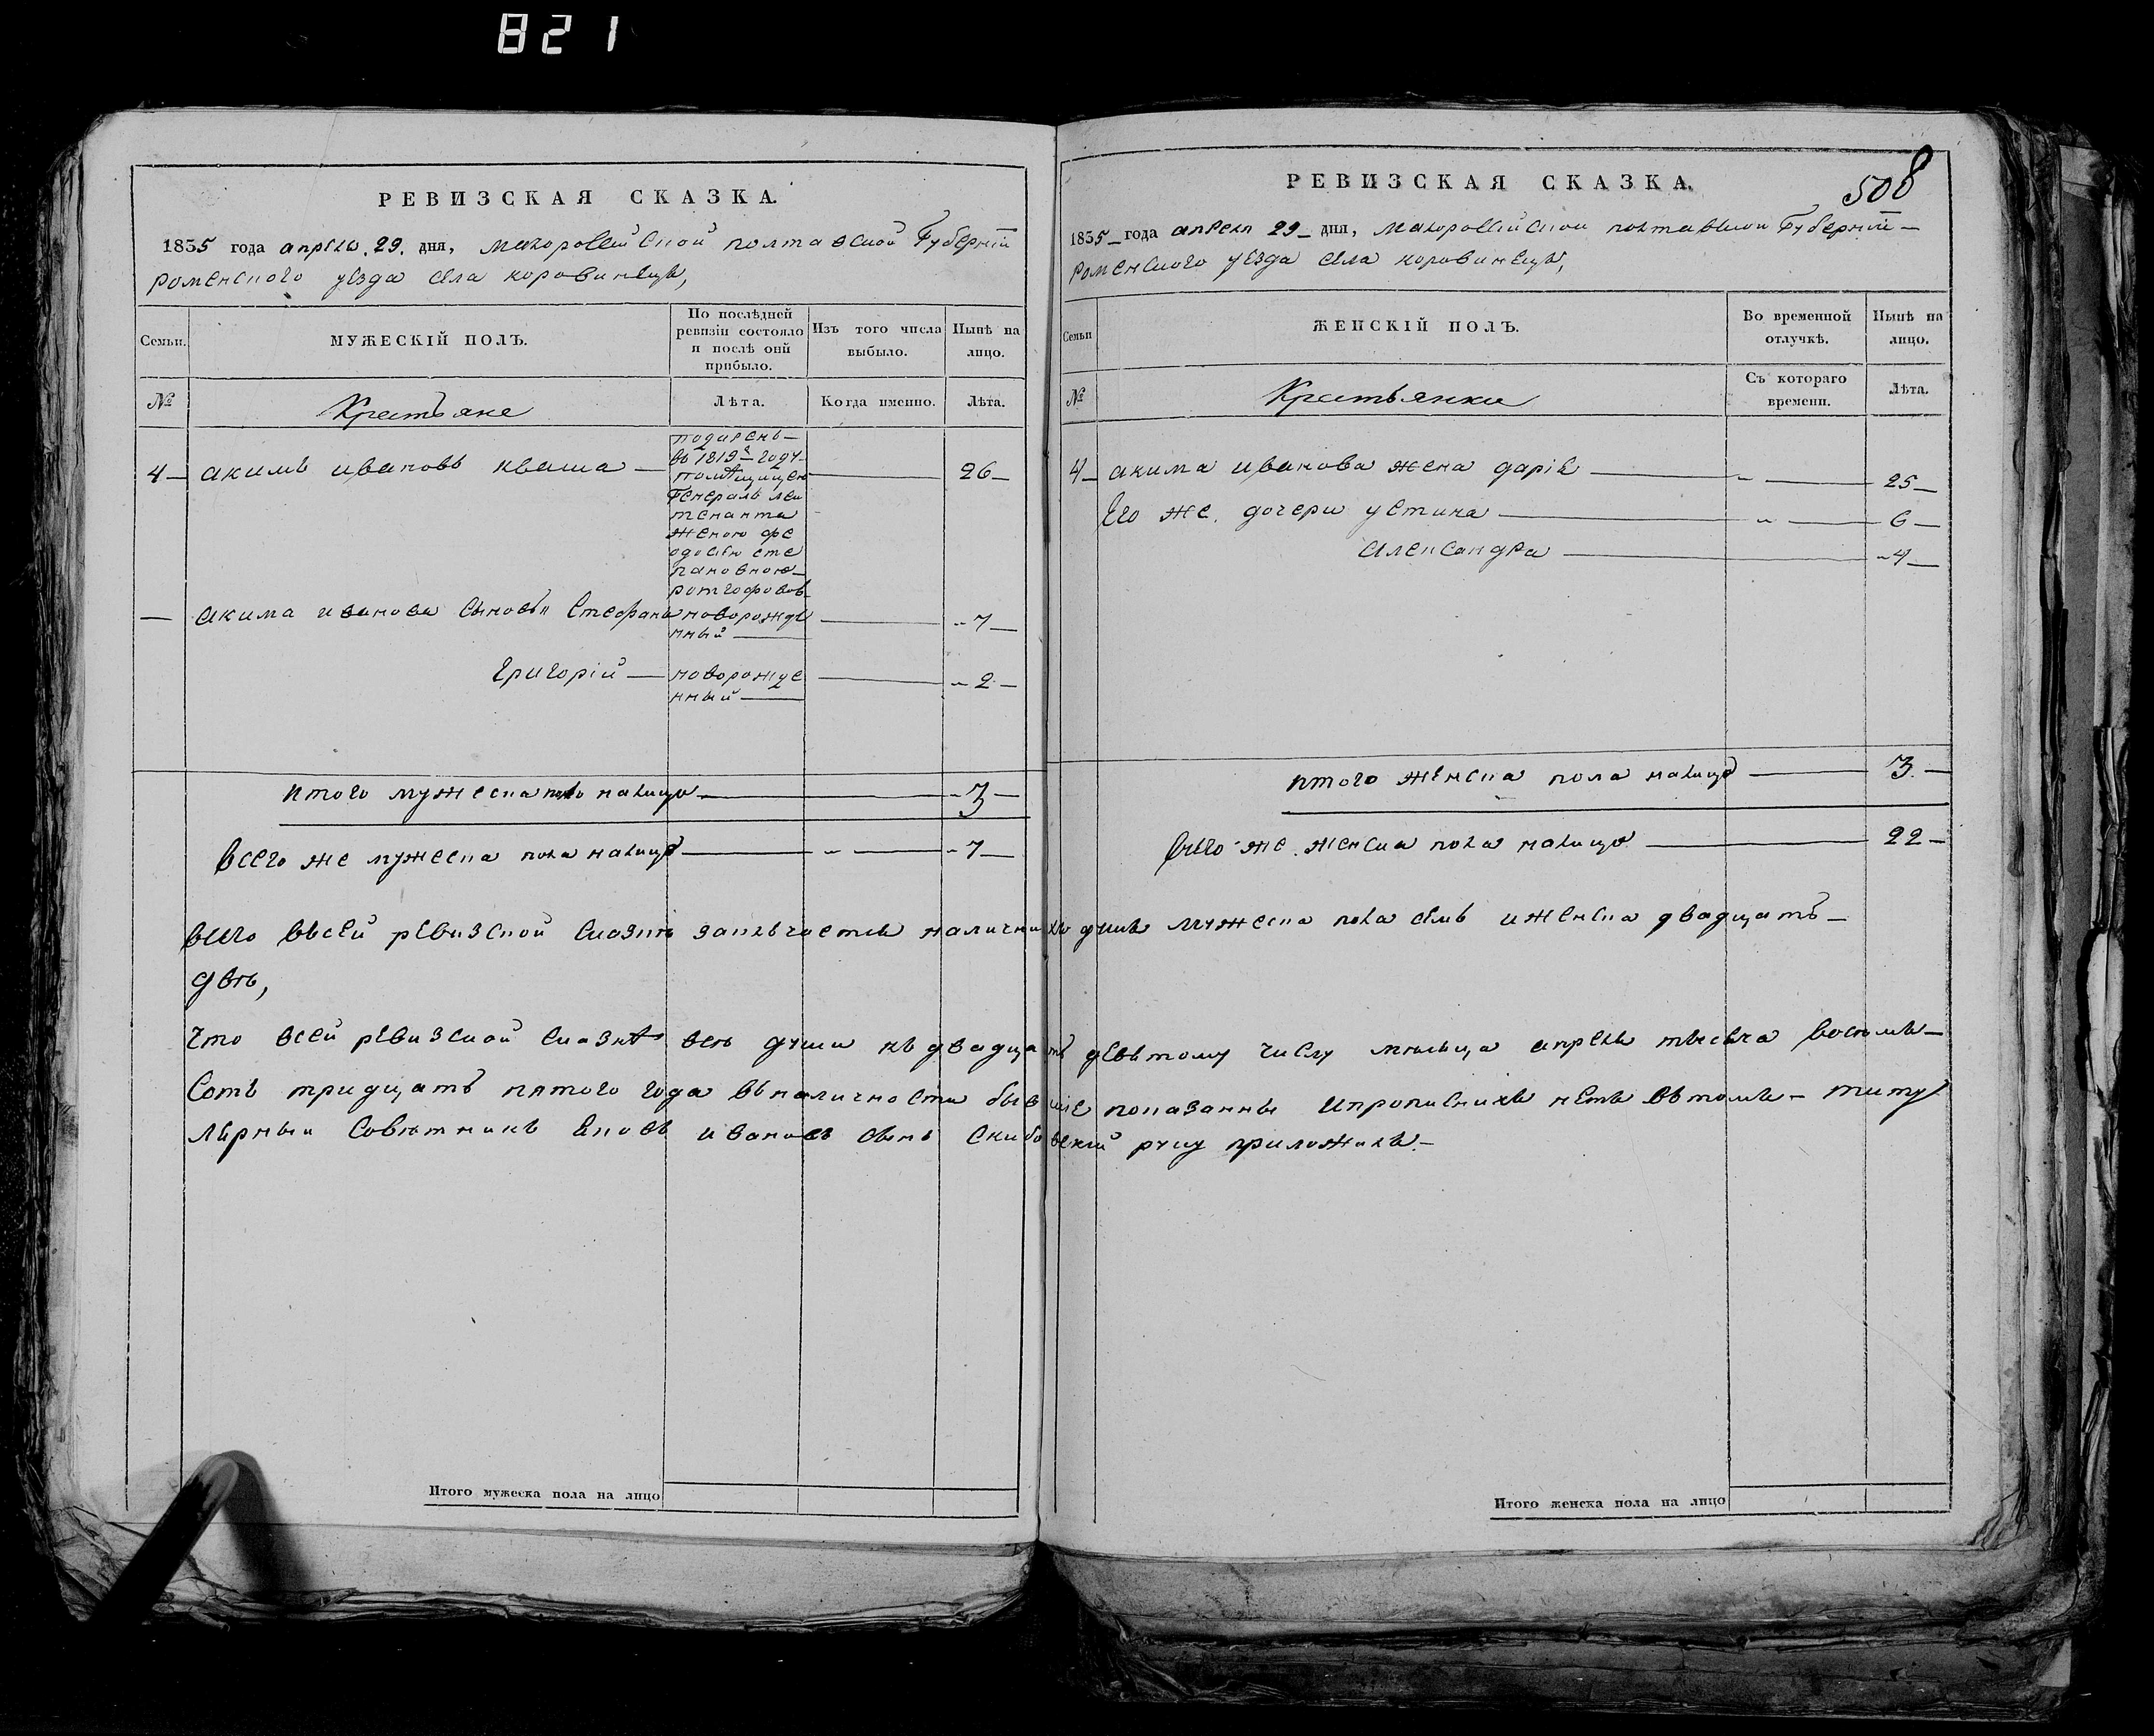 821
РЕВИЗСКАЯ СКАЗКА.
1835 года апреля 29. дня, малоросейской полтавской Губерній
роменского уезда села коровинець,
Семьи.
МУЖЕСКІЙ ПОЛЪ.
По послѣдней ревизіи состояло и послѣ оий прибыло.
Изъ того числа выбыло.
Нынѣ на лицо.
№
Крестьяне
Лѣта.
Когда именно.
Лѣта.
4 — акимъ ивановъ кваша — 26 —
подарень
въ 1819 году
помѣщицею
Генералъ леи
тенанта
женою фе
одосією сте
пановною
ротгофовов
— акима иванова сыновья Стефань новорожде — 7 —
нный —
григорій — новорожде — 2 —
нный —
итого мужеска поло налицо — 3 —
всего же мужеска пола налицо — 7 —
508
РЕВИЗСКАЯ СКАЗКА.
1835 — года апреля 29 — дня, малоросейской полтавской Губерній —
роменского уезда села коровинець,
Семьи
ЖЕНСКІЙ ПОЛЪ.
Во временной отлучкѣ.
Нынѣ на лицо.
№
Крестьянки
Съ котораго времени.
Лѣта.
4 — акима иванова жена дарія — 25 —
Его же. дочери устина — 6 —
александра — 4 —
итого женска пола налицо — 3. —
всего же. женска пола налицо — 22 —
всего въсей ревизской сказкѣ заключаетъся наличнихъ душъ мужеска пола семь иженска двадцать —
двѣ,
Что всей ревизской сказкѣ всѣ души къ двадцать девятому числу месяца апреля тысяча восемь —
сотъ тридцать пятого года вьналичности бывшіе показанны ипрописнихъ нетъ вьтомъ — титу
лярный Советникъ Яковъ ивановъ сынъ скибовскій руку приложилъ. —
Итого мужеска пола на лицо
Итого женска пола на лицо